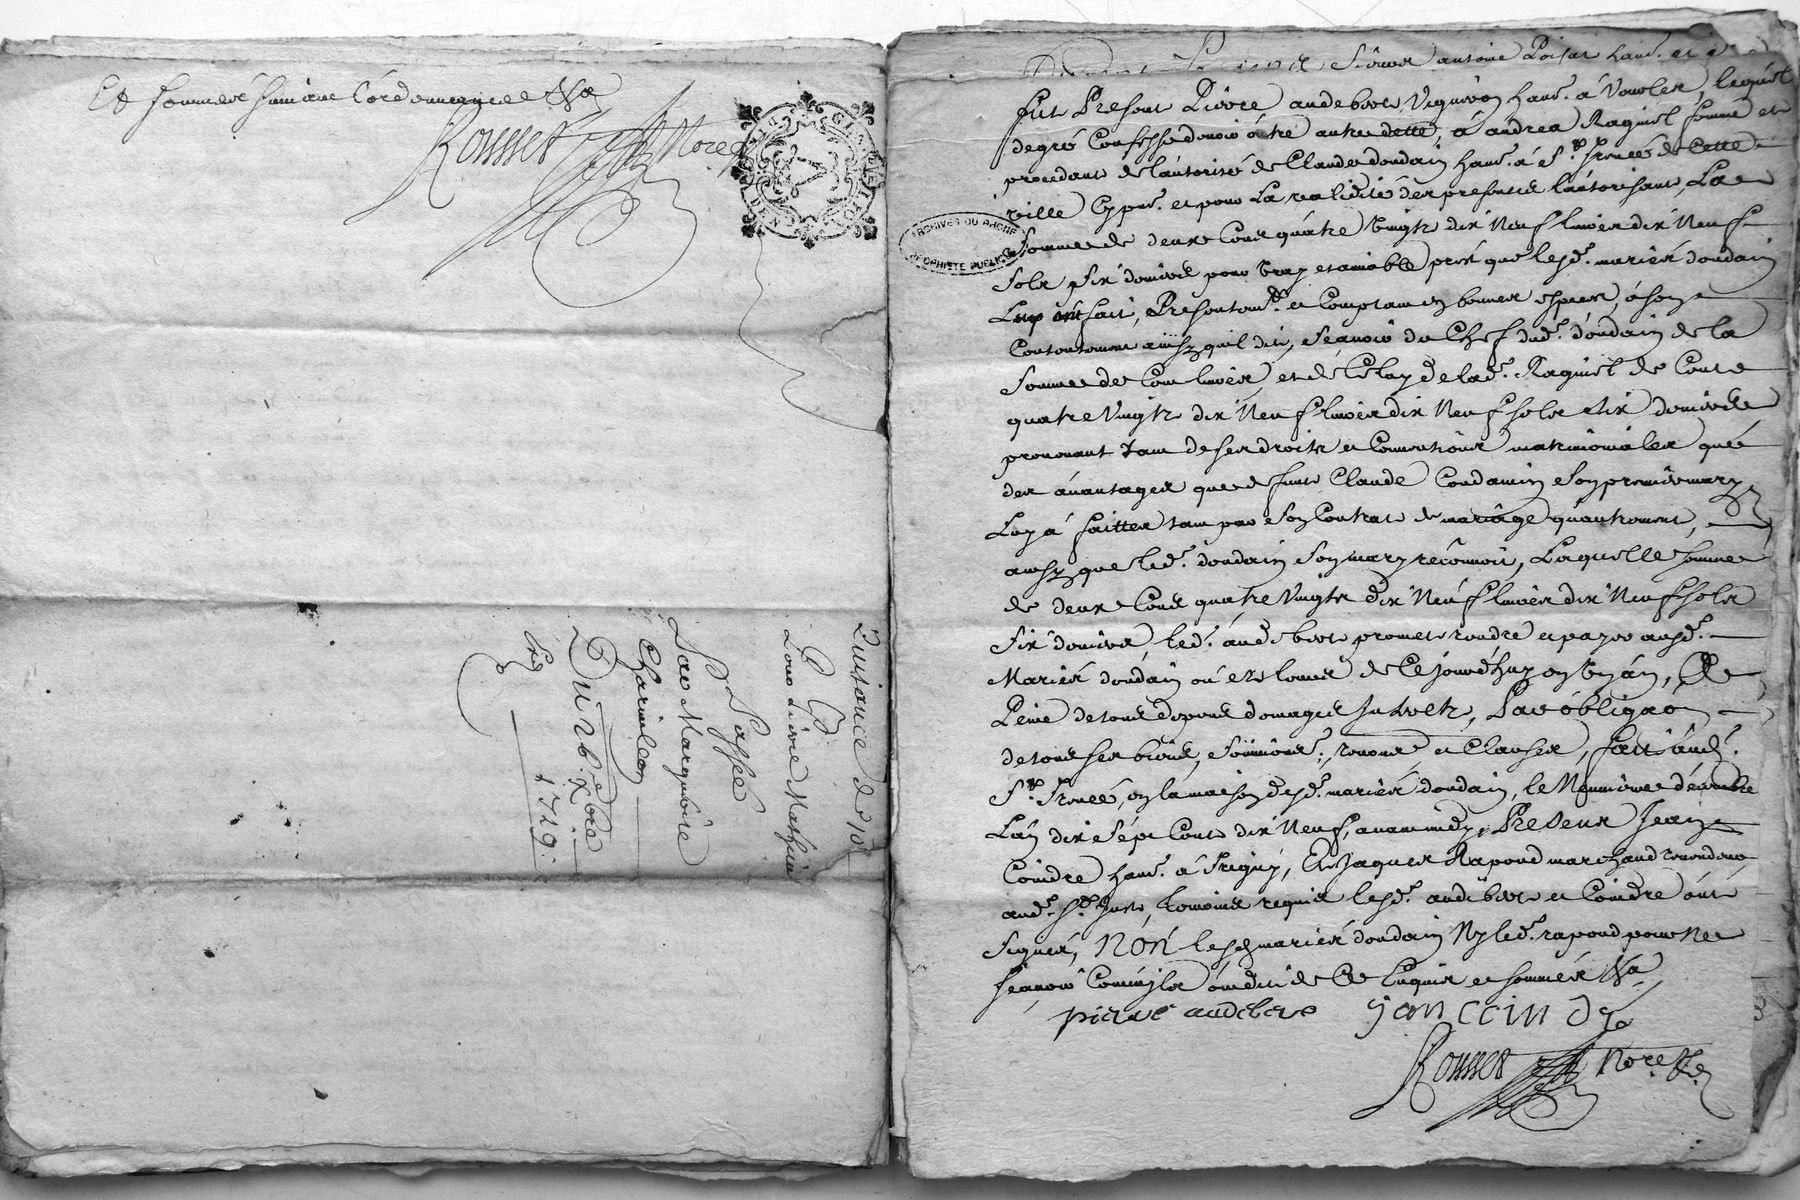 Et sommés suivant l'ordonnance
Rousset Nore
GENERALITE DE LYON
Quittance de 10
Pour sieur Mathieu
Passée
Par Marguerite
Charmilon
Du 26 Xbre
1719
sieur antoine
fut Present Pierre andebert Vigneron hant. á Vourles, lequel
degré Confesse devoir á andrea Raquiel femme et
procedante de l'autorité de Claude dondain hant. á St. Irenée de Cette
ville Cy pnt. et pour La validité des presentes l'autorisant, La
ARCHIVES DU RHONE
Somme de deux Cent quatre Vingts dix Neuf livres dix Neuf
Sols six deniers pour vray et amiable prest que lesd. mariés dondain
Luy ont fait, Presentemt. et Comptant en bonnes especes, á son
Contentement ainsy quil dit, Scavoir du Chef dud. dondain de la
Somme de Cent livres, et de Celuy de lad. Raquiel de Cent
quatre Vingts dix Neuf livres dix Neuf sols six deniers
provenant tant de ses droits et Conventions matrimoniales que
des avantages que feu Claude Condamin son premier mary
Luy á faittes tant par son Contrat de mariage qu'autrement,
ainsy que led. dondain son mary reconnoit, Laquelle somme
de deux Cent quatre Vingts dix Neuf livres dix Neuf sols
six deniers, led. andebert promet rendre et payer ausd.
Mariés dondain de Ce jourd'huy en Un an, á
Peine de tous depens domages Interets, Par obligaon
de tous ses biens, Soumions. renons. et Clauses, fait aud.
St. Irenée, en la maison desd. mariés dondain, le Neuvieme decembre
L'an dix Sept Cent dix Neuf, avant midy, Presens Jean
Coindre hant. á Irigny, Et Jaques Rapoud marchand
aud. St. Just, temoins requis lesd. andebert et Coindre ont
Signés, Non lesd. mariés dondain Ny led. rapoud pour Ne
scavoir Comme ils ont dit de Ce Enquis et sommés
pierre audebert jan coindre
Rousset Nore